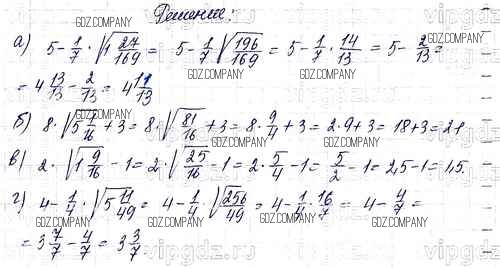 Решение:
а) 5 - 1/7 · √(1 27/169) = 5 - 1/7 · √(196/169) = 5 - 1/7 · 14/13 = 5 - 2/13 =
= 4 13/13 - 2/13 = 4 11/13
б) 8 · √(5 1/16) + 3 = 8 · √(81/16) + 3 = 8 · 9/4 + 3 = 2 · 9 + 3 = 18 + 3 = 21.
в) 2 · √(1 9/16) - 1 = 2 · √(25/16) - 1 = 2 · 5/4 - 1 = 5/2 - 1 = 2,5 - 1 = 1,5.
г) 4 - 1/4 · √(5 11/49) = 4 - 1/4 · √(256/49) = 4 - 1/4 · 16/7 = 4 - 4/7 =
= 3 7/7 - 4/7 = 3 3/7
GDZ.COMPANY
vipgdz.ru